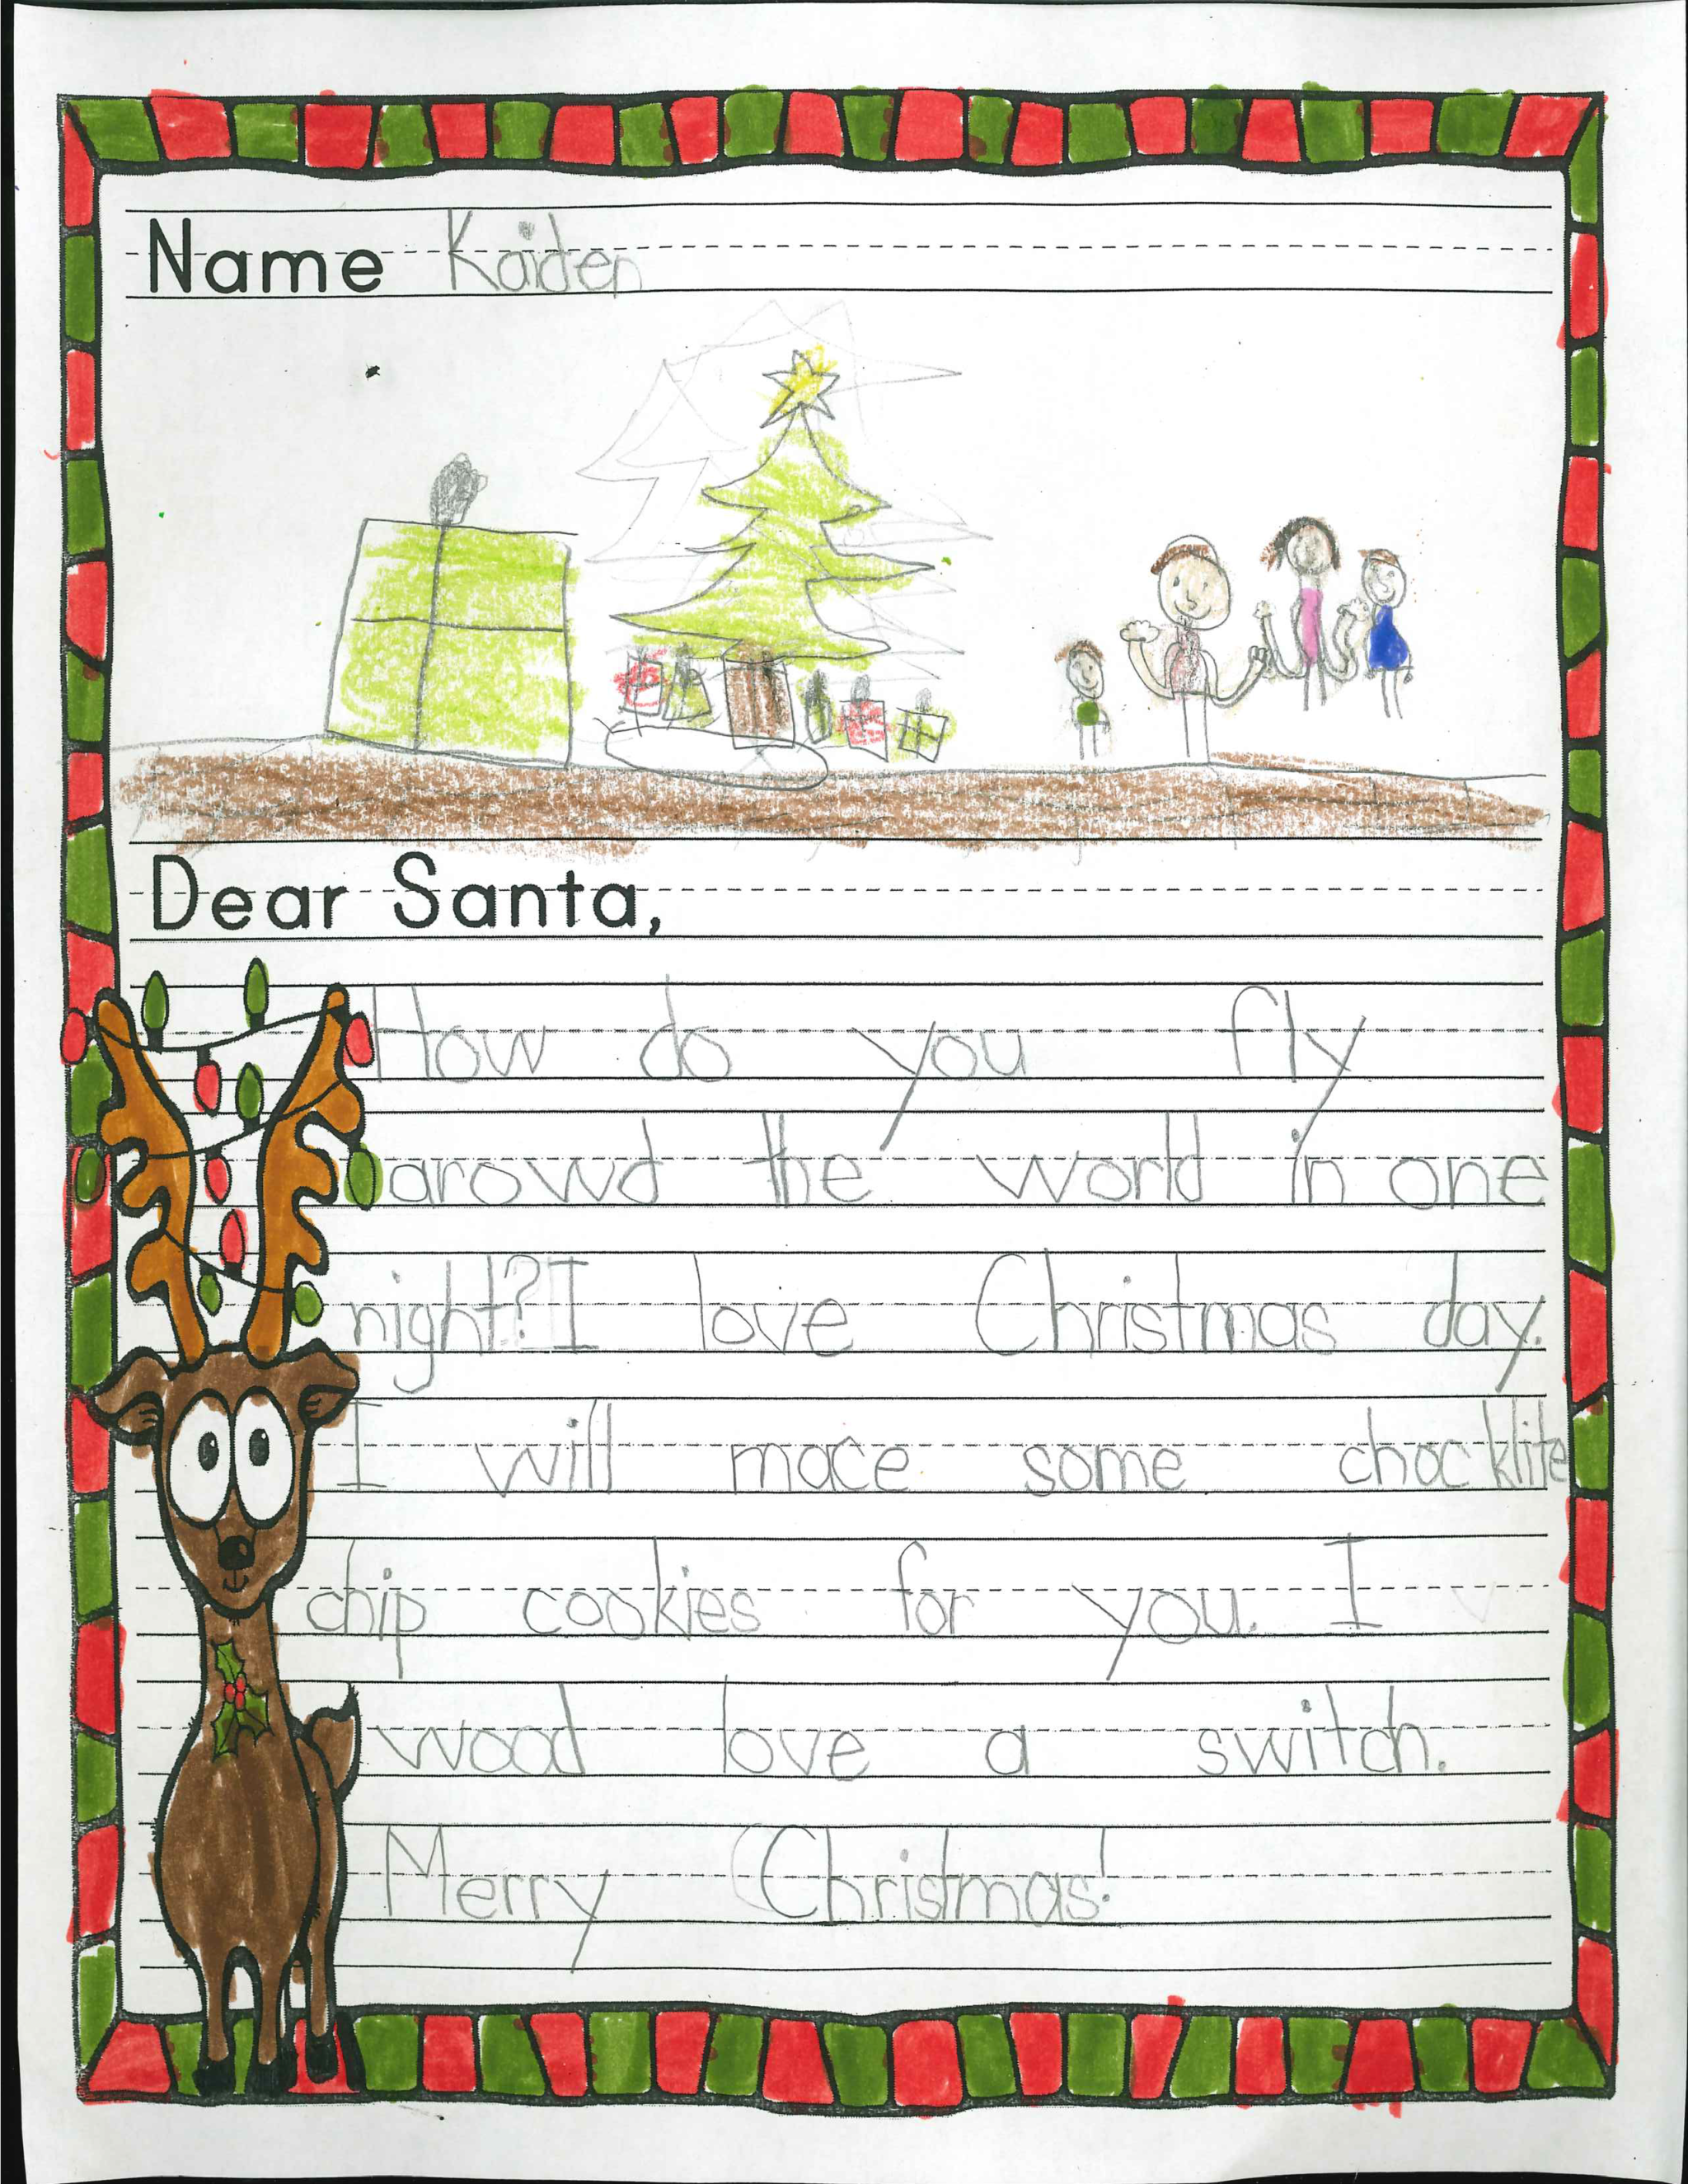 Name Kaiden
Dear Santa,
How do you fly
arowd the world in one
night? I love Christmas day.
I will mace some chocklite
chip cookies for you. I
wood love a switch.
Merry Christmas!